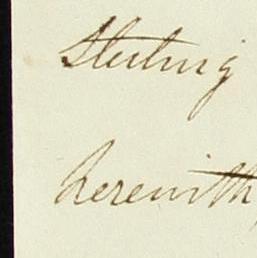 Sterling
herewith